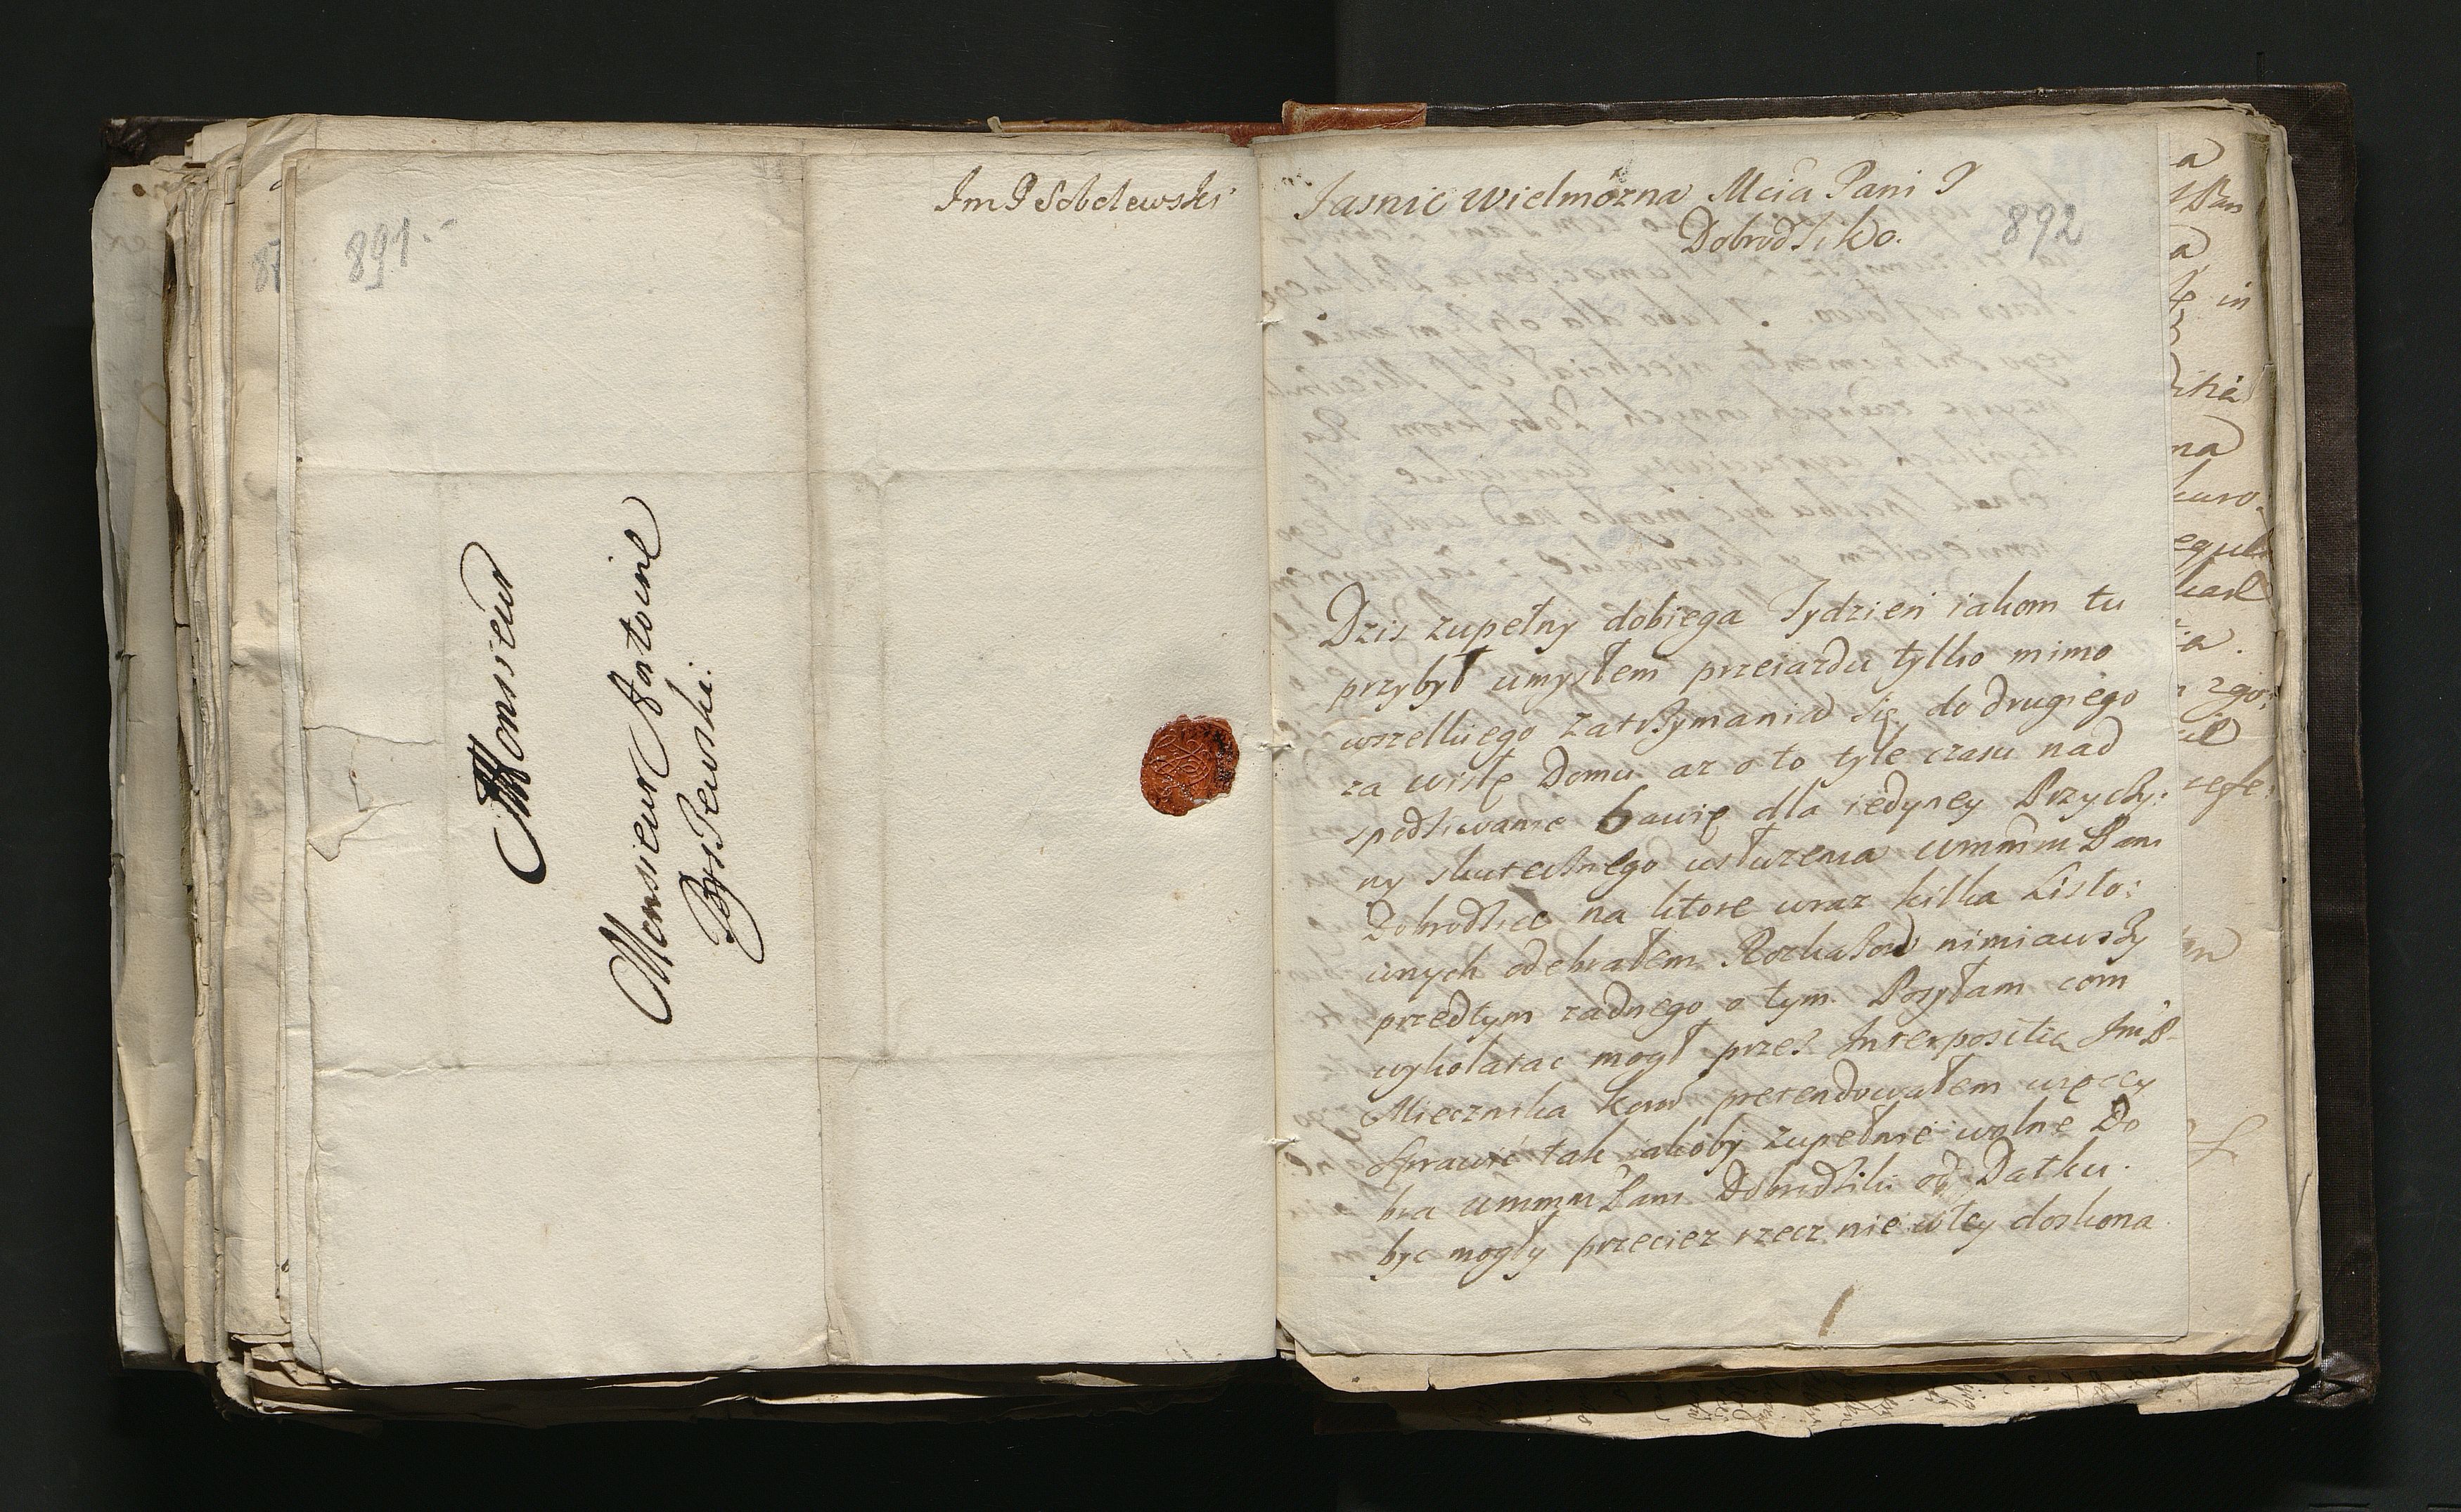 891.
ImP Sobolewski
Monsieur
Monsieur Antoine
892
Jasnie Wielmozna Mcia Pani J
Dobrodziko.
Dzis zupełny dobiega Tydzien iakom tu
przybył umysłem przeiazdu tylko mimo
wszelkiego zatrzymania się do drugiego
za wisłę Domu az oto tyle czasu nad
spodziwanie bawię dla iedyney Przyczy:
ny skutecznego usłuzenia ummm Pani
Dobrodzice na ktore wraz kilka Listo:
wnych odebrałem Rozkazow nimiawszy
przedtym zadnego o tym. Posyłam com
wykołatac mogł przez Interpositią ImP
Miecznika pretendowałem węcey
Sprawić tak iakoby zupełnie wolne Do
bra ummm Pani Dobrodziki od Datku.
byc mogły przeciez rzecz nie wtey doskona